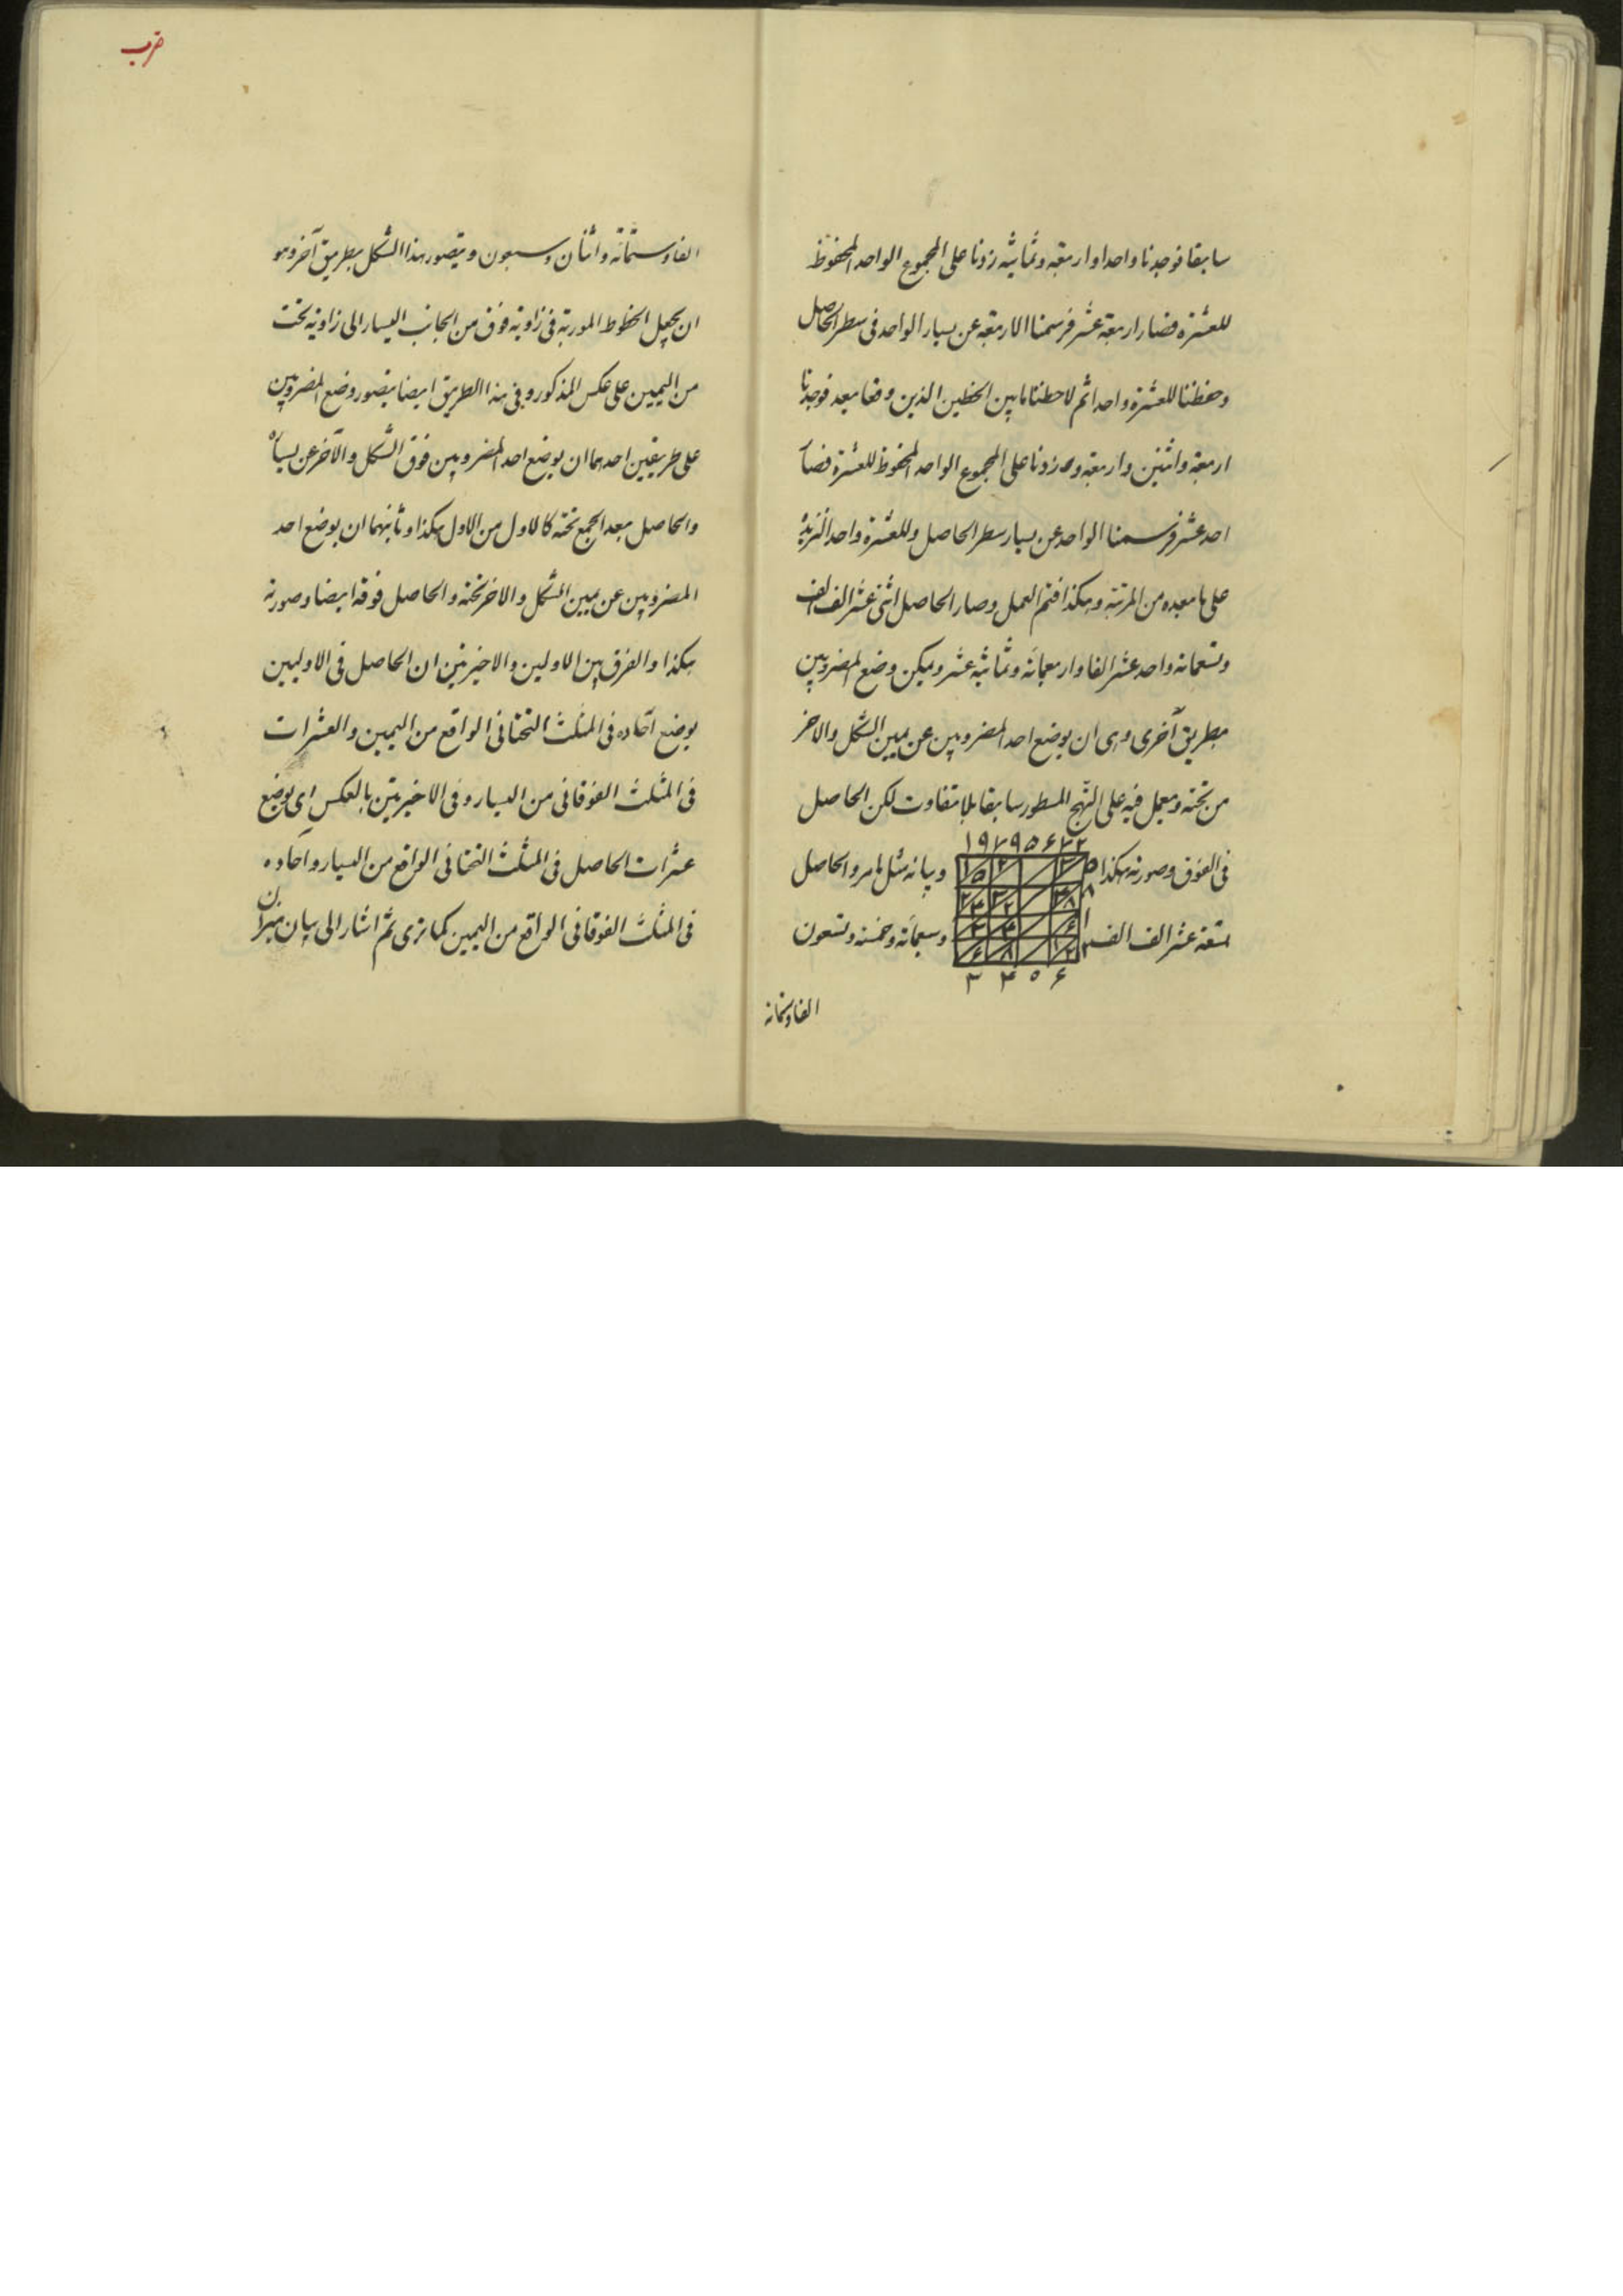 سابقا فوجدنا واحدا واربعة وثمانية زدنا على المجموع الواحد المحفوظ
للعشرة فصار اربعة عشر فرسمنا الاربعة عن يسار الواحد فى سطر الحاصل
وحفظنا للعشرة واحدا ثم لاحظنا ما بين الخطين الذين وقعا بعد فوجدنا
اربعة واثنين واربعة زدنا على المجموع الواحد المحفوظ للعشرة فصار
احد عشر فرسمنا الواحد عن يسار سطر الحاصل وللعشرة واحدا لنزيده
على ما بعده من المرتبة وهكذا فتم العمل وصار الحاصل اثنى عشر الف الف
وتسعمائة واحد عشر الفا واربعمائة وثمانية عشر ويمكن وضع المضروبين
بطريق آخرى وهى ان يوضع احد المضروبين عن يمين الشكل والاخر
من تحته ويعمل فيه على النهج المسطور سابقا بلا متفاوت لكن الحاصل
فى الفوق وصورته هكذا وبيانه مثل ما مر والحاصل
۱۹۷۹۵۶۷۲
تسعة عشر الف الف وسبعمائة وخمسة وتسعون
۵
۸
۱
۲
۳ ۴ ۵ ۶
الفا وستمائة
ضرب
الفا وستمائة واثنان وسبعون ويتصور هذا الشكل بطريق آخر وهو
ان يجعل الخطوط الموربة فى زاوية فوق من الجانب اليسار الى زاوية تحت
من اليمين على عكس المذكور وفى هذا الطريق ايضا يتصور وضع المضروبين
على طريقين احدهما ان يوضع احد المضروبين فوق الشكل والآخر عن يساره
والحاصل بعد الجمع تحته كالاول من الاول هكذا وثانيهما ان يوضع احد
المضروبين عن يمين الشكل والاخر تحته والحاصل فوقه ايضا وصورته
هكذا والفرق بين الاولين والاخيرتين ان الحاصل فى الاوليين
يوضع آحاده فى المثلث التحتانى الواقع من اليمين والعشرات
فى المثلث الفوقانى من اليسار وفى الاخيرتين بالعكس اى يوضع
عشرات الحاصل فى المثلث التحتانى الواقع من اليسار وآحاده
فى المثلث الفوقانى الواقع من اليمين كما ترى ثم اشار الى بيان ميزان